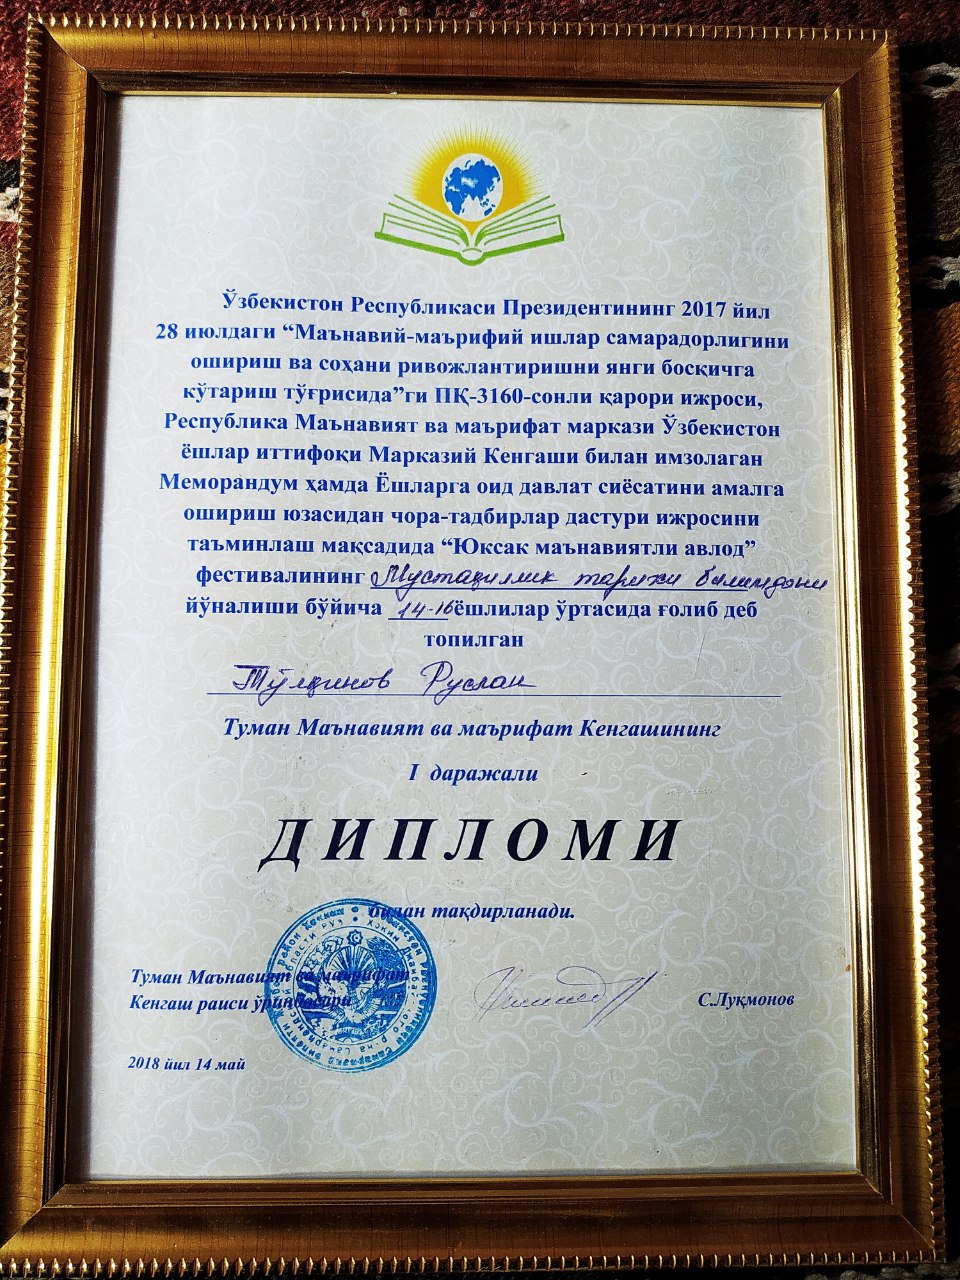 Ўзбекистон Республикаси Президентининг 2017 йил
28 июлдаги “Маънавий-маърифий ишлар самарадорлигини
ошириш ва соҳани ривожлантиришни янги босқичга
кўтариш тўғрисида”ги ПҚ-3160-сонли қарори ижроси,
Республика Маънавият ва маърифат маркази Ўзбекистон
ёшлар иттифоқи Марказий Кенгаши билан имзолаган
Меморандум ҳамда Ёшларга оид давлат сиёсатини амалга
ошириш юзасидан чора-тадбирлар дастури ижросини
таъминлаш мақсадида “Юксак маънавиятли авлод”
фестивалининг Мустақиллик тарихи билимдони
йўналиши бўйича 14-16 ёшлилар ўртасида ғолиб деб
топилган
Тўлқинов Руслан
Туман Маънавият ва маърифат Кенгашининг
I даражали
ДИПЛОМИ
билан тақдирланади.
Туман Маънавият ва маърифат
Кенгаш раиси ўринбосари
С.Луқмонов
2018 йил 14 май